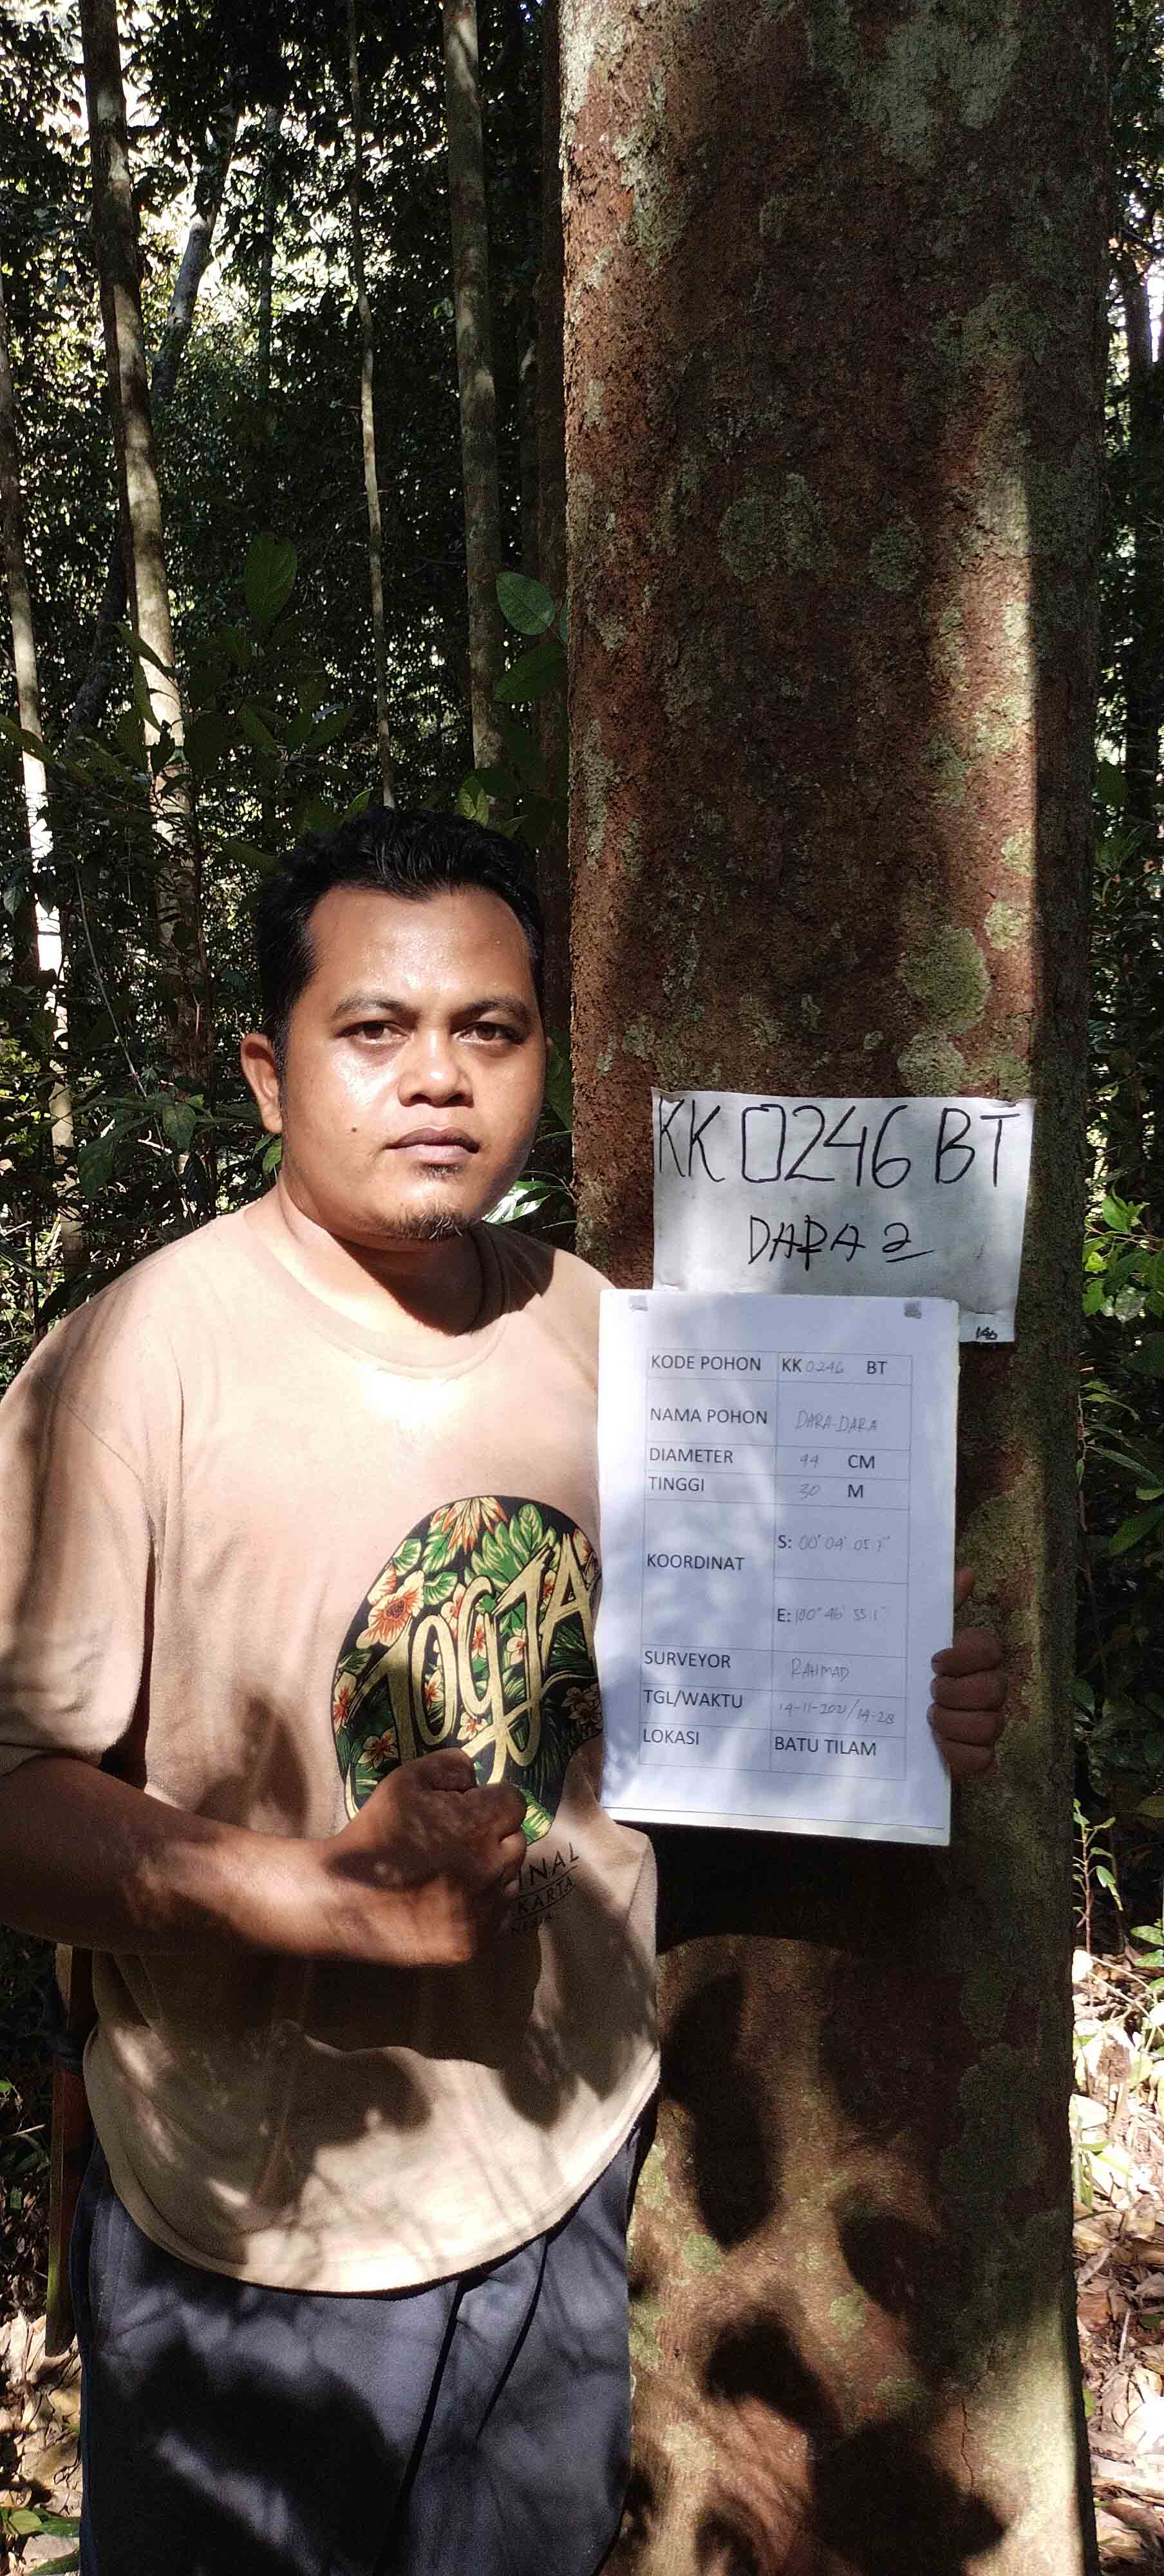 KK 0246 BT
DARA 2
146
KODE POHON KK 0246 BT
NAMA POHON DARA-DARA
DIAMETER 44 CM
TINGGI 30 M
KOORDINAT
S: 00° 04' 05.
E: 100° 46' 55.1"
SURVEYOR RAHMAD
TGL/WAKTU 14-11-2021/14-28
LOKASI BATU TILAM
JOGJA
INAL
KARTA
NESIA